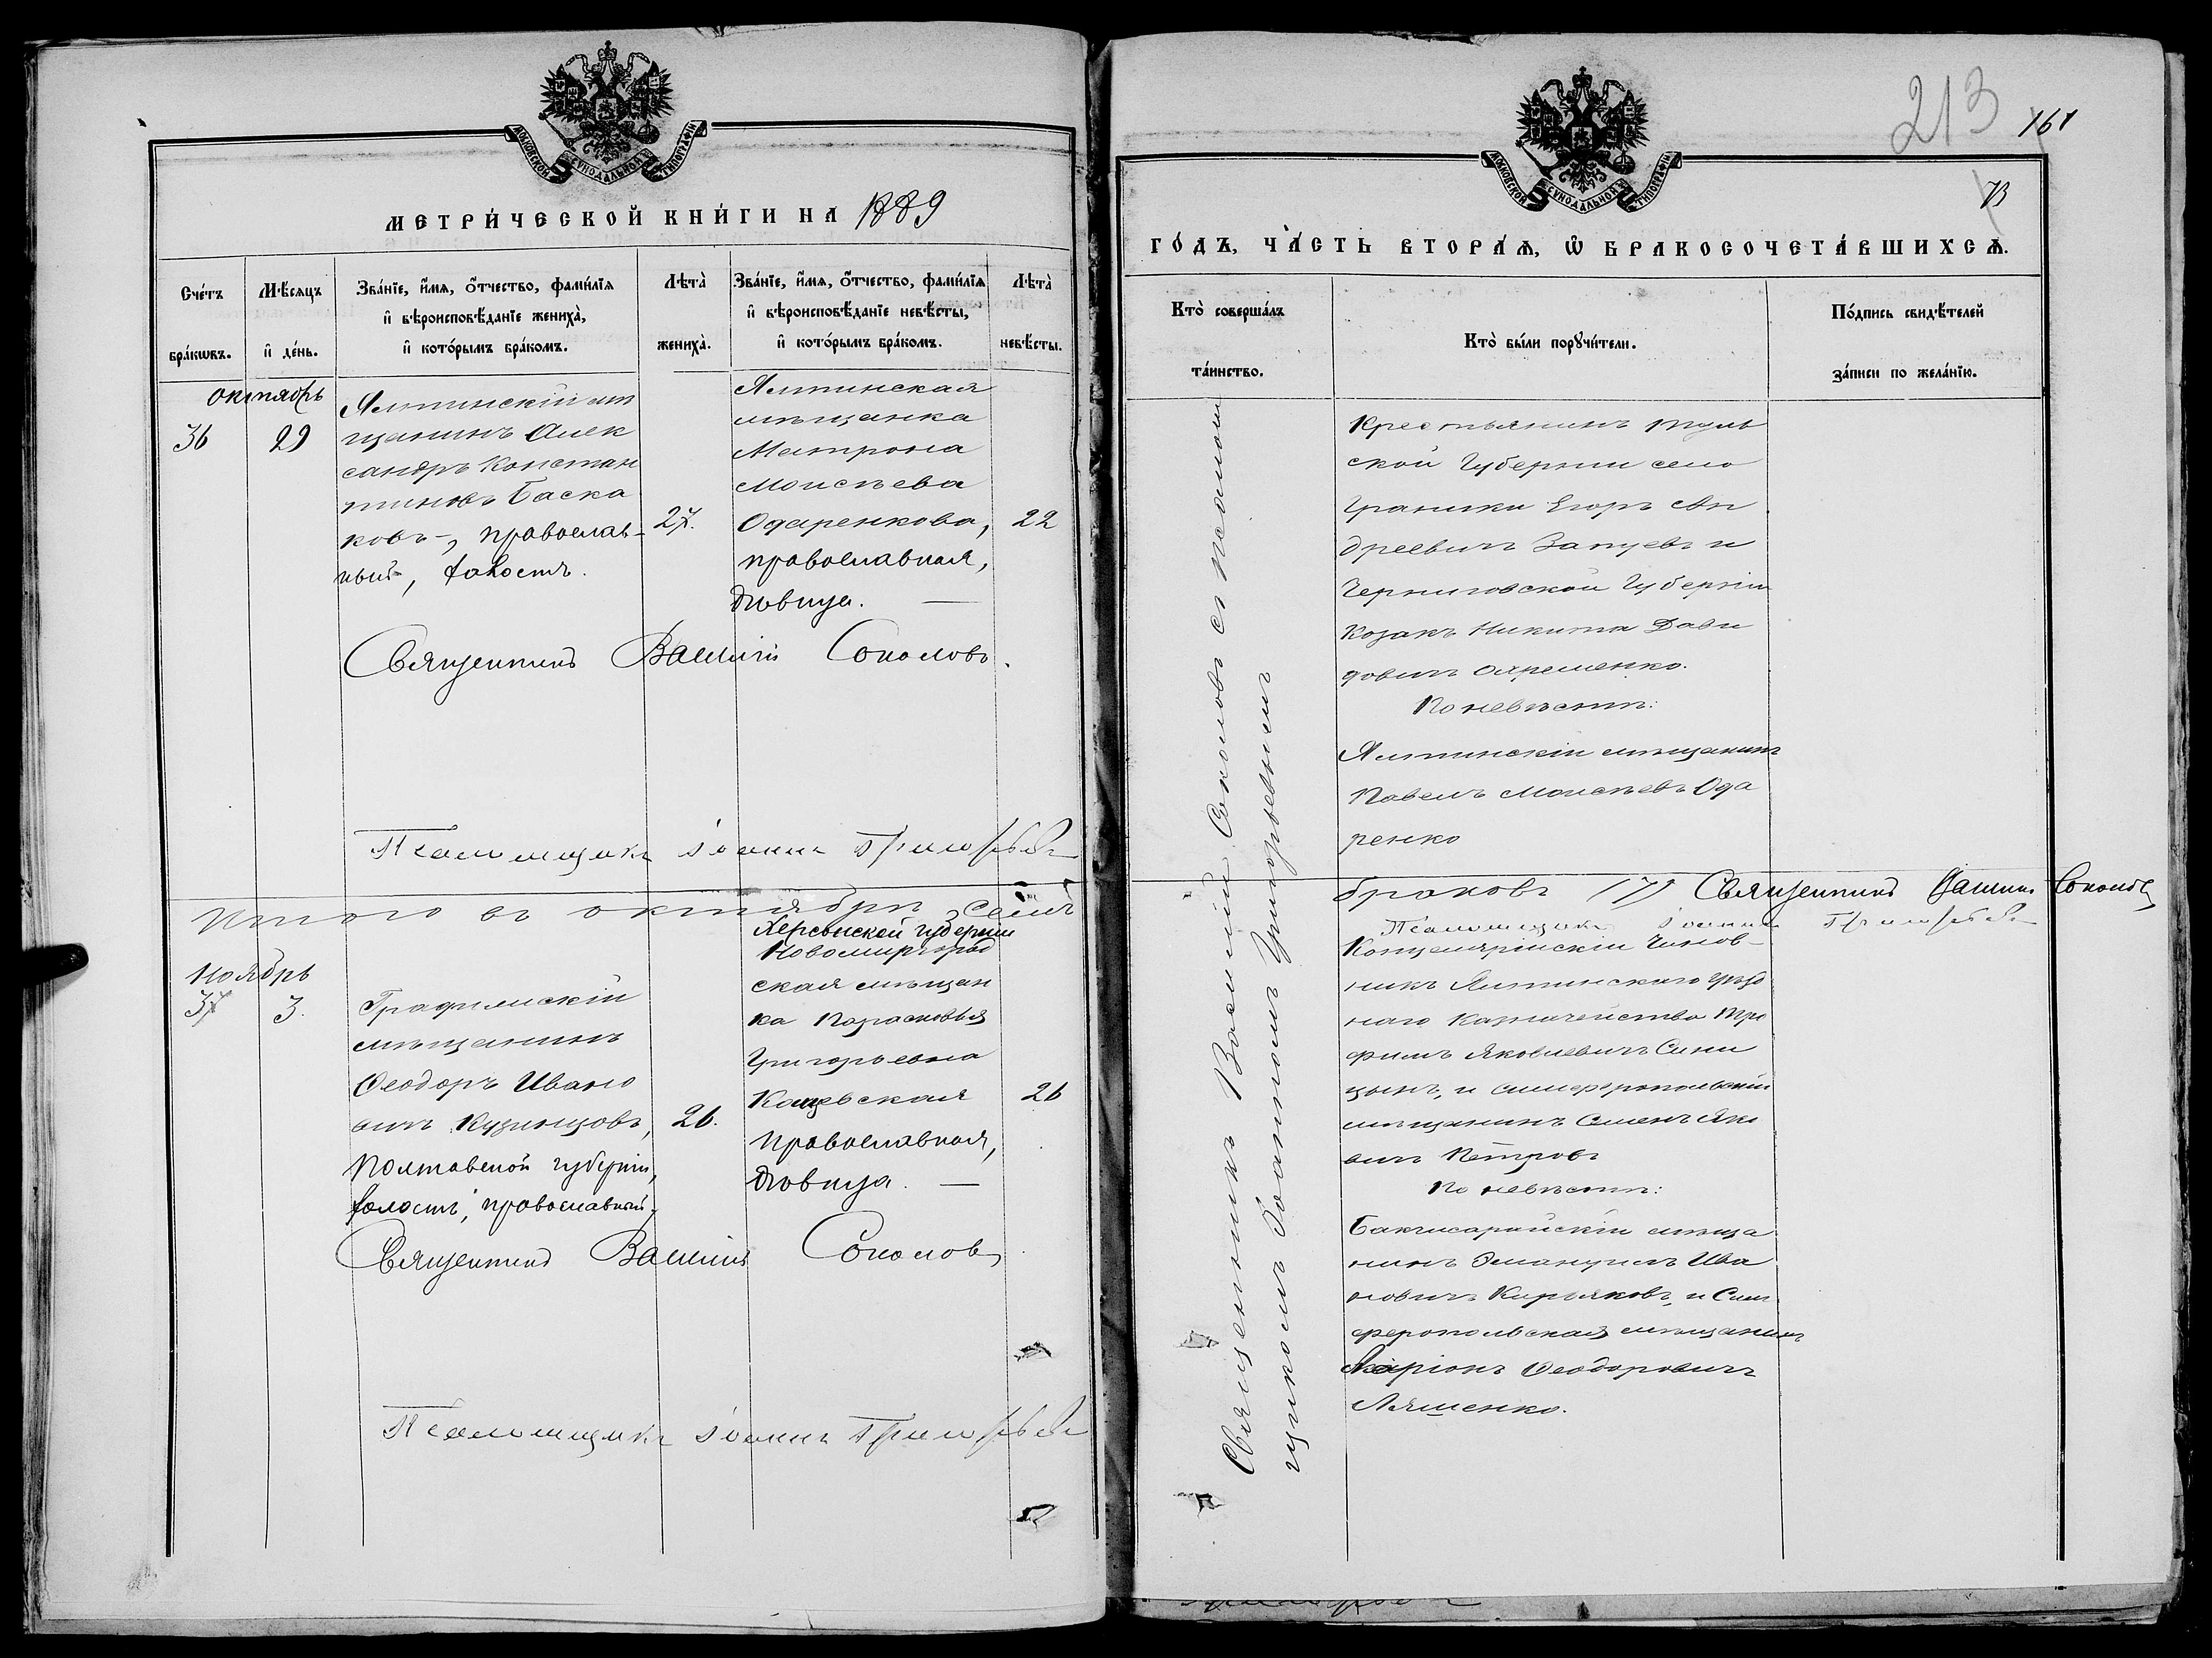 МОСКОВСКОЙ СѴНОДАЛЬНОЙ ТИПОГРАФІИ
МЕТРИ́ЧЕСКОЙ КНИ́ГИ НА 1889
Сче́тъ бра́кѡвъ.
Мѣ́сяцъ и҆ де́нь.
Зва́нїе, и҆́мѧ, ѻ҆́тчество, фами́лїѧ
и҆ вѣроисповѣ́данїе жениха̀,
и҆ кото́рымъ бра́комъ.
Лѣта̀ жениха̀.
Зва́нїе, и҆́мѧ, ѻ҆́тчество, фами́лїѧ
и҆ вѣроисповѣ́данїе невѣ́сты,
и҆ кото́рымъ бра́комъ.
Лѣта̀ невѣ́сты.
октябрь
36
29
Ялтинскій мѣ
щанинъ Алек
сандръ Констан
тиновъ Баска
ковъ, православ-
ный, холостъ.
27.
Ялтинская
мѣщанка
Матрона
Моисѣева
Одаренкова,
православная,
дѣвица.
22
Священникъ Василій Соколовъ.
Псаломщикъ Іоаннъ Григорьевъ
Итого въ октябрѣ семь
Ноябрь
37
3.
мѣщанинъ
Ѳеодоръ Ивано
вичъ Кузнецовъ,
Полтавской губерніи,
холостъ, православный,
26.
Херсонской губерніи
Новомиргород
ская мѣщан
ка Парасковья
Григорьевна
православная,
дѣвица.
26
Священникъ Василій Соколовъ
Псаломщикъ Іоаннъ Григорьевъ
213
161
73
МОСКОВСКОЙ СѴНОДАЛЬНОЙ ТИПОГРАФІИ
ГО́ДЪ, ЧА́СТЬ ВТОРА́Ѧ, Ѽ БРАКОСОЧЕТА́ВШИХСѦ.
Кто̀ соверша́лъ та́инство.
Кто̀ бы́ли порꙋчи́тели.
По́дпись свидѣ́телей за́писи по жела́нїю.
Священникъ Василій Соколовъ съ псалом
щикомъ Іоанномъ Григорьевымъ
Крестьянинъ Туль
ской Губерніи село
Егоръ Ан
дреевичъ и
Черниговской Губерніи
Козакъ Никита Дави
довичъ Охременко.
По невѣстѣ:
Ялтинскій мѣщанинъ
Павелъ Моисѣевъ Ода
ренко
браковъ (7) Священникъ Василій Соколовъ
Псаломщикъ Іоаннъ Григорьевъ
Канцелярскій Чинов-
никъ Ялтинскаго уѣзд
наго Казначейства Тро
фимъ Яковлевичъ Сини
цынъ, и симферопольскій
мѣщанинъ Семенъ Яко
вичъ Петровъ
По невѣстѣ:
Бакчисарайскій мѣща
нинъ Эмануилъ Ива
новичъ Кирьяковъ, и Сим
феропольская мѣщанинъ
Ѳеодоровичъ
Ляшенко.